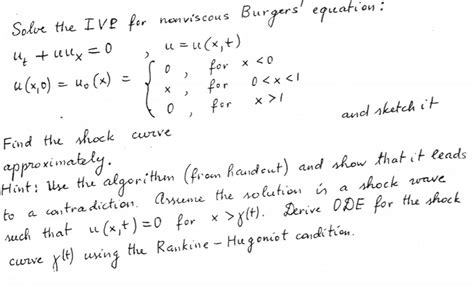 Solve the IVP for nonviscous Burgers' equation:
u_t + uu_x = 0 , u = u(x,t)
u(x,0) = u_0(x) = { 0 , for x < 0
x , for 0 < x < 1
0 , for x > 1
Find the shock curve and sketch it
approximately.
Hint: Use the algorithm (from handout) and show that it leads
to a contradiction. Assume the solution is a shock wave
such that u(x,t) = 0 for x > γ(t). Derive ODE for the shock
curve γ(t) using the Rankine-Hugoniot condition.